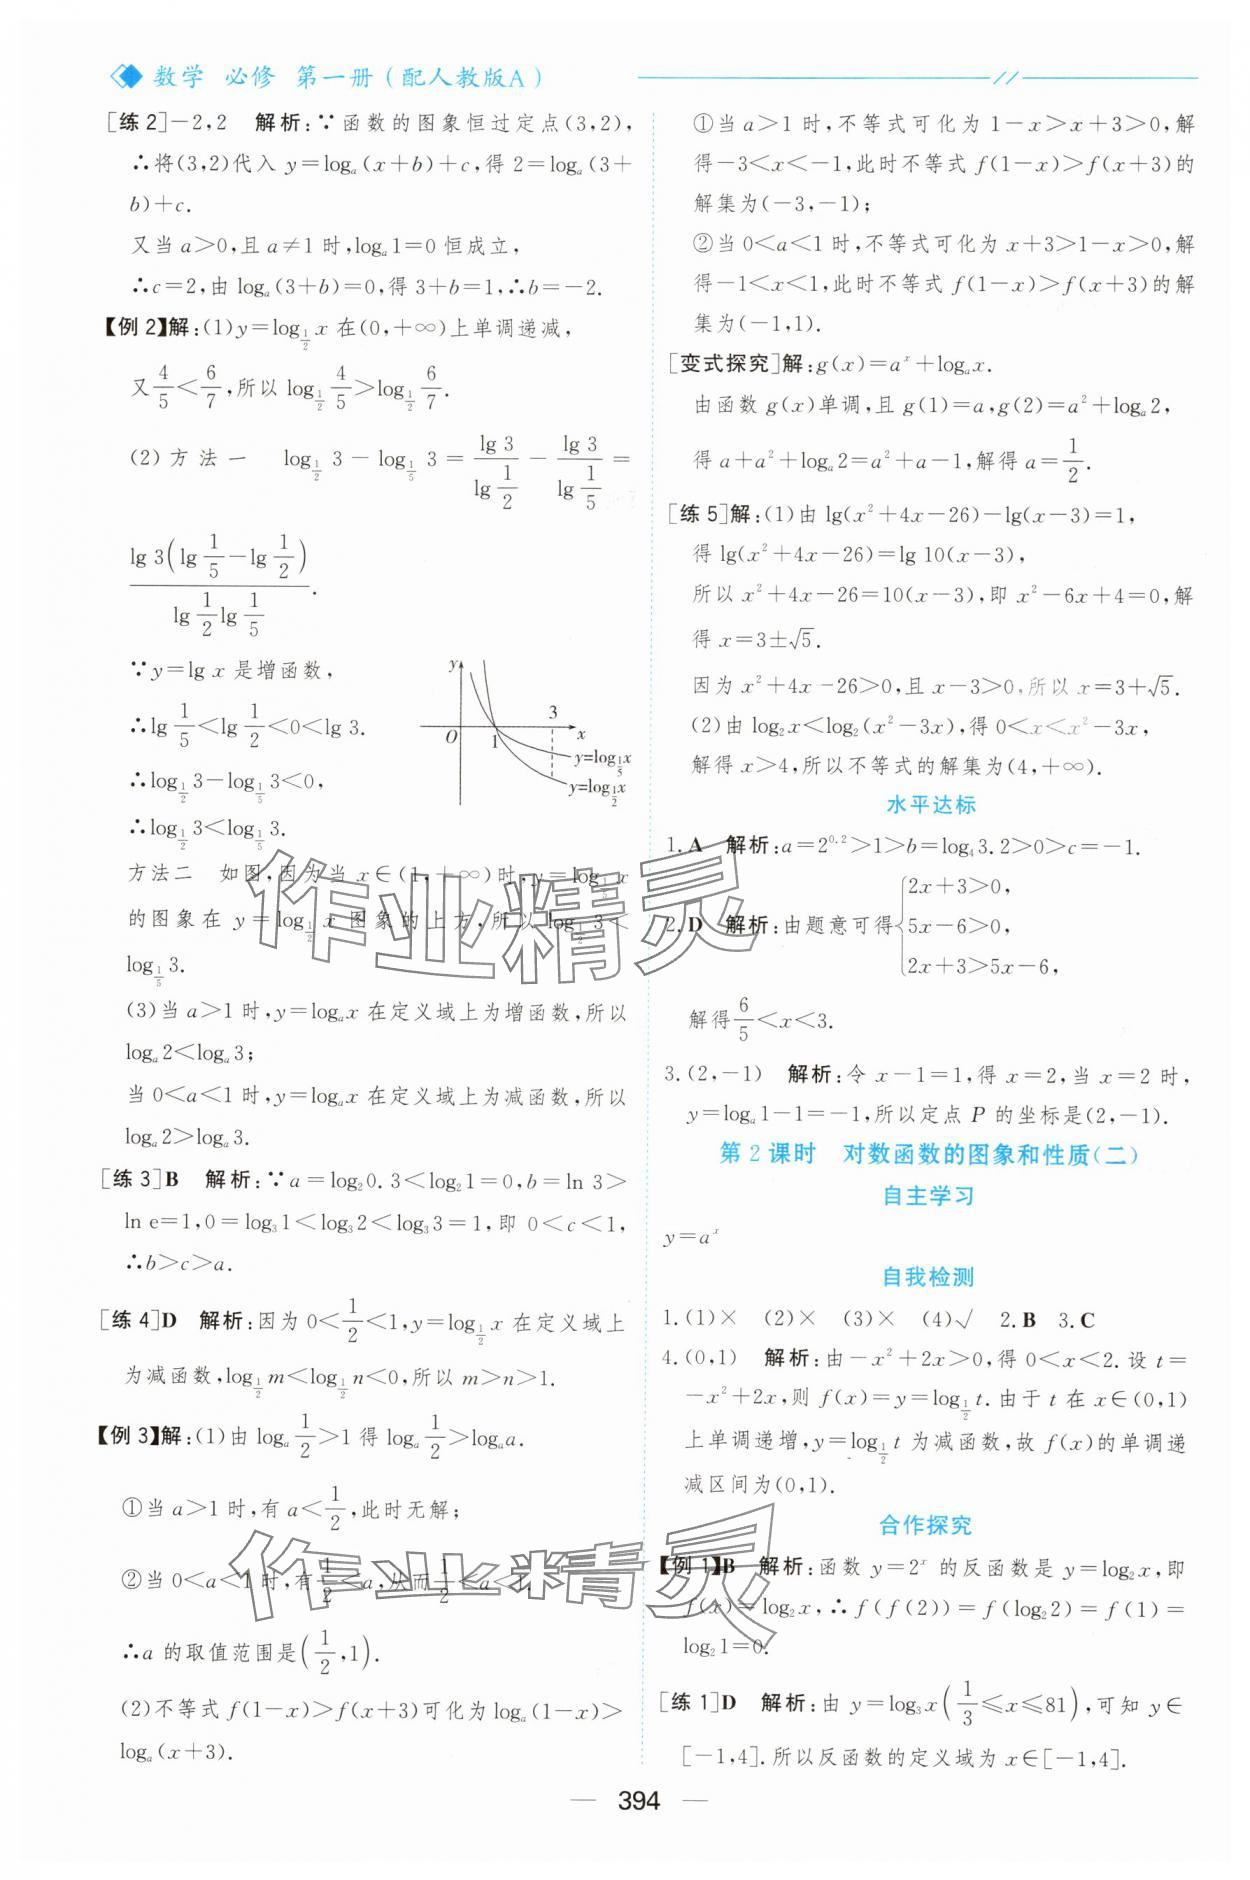 数学 必修 第一册(配人教版A)
[练2]-2,2 解析:∵函数的图象恒过定点(3,2),
∴将(3,2)代入 y=logₐ(x+b)+c,得 2=logₐ(3+
b)+c.
又当 a>0,且 a≠1 时,logₐ1=0 恒成立,
∴c=2,由 logₐ(3+b)=0,得 3+b=1,∴b=-2.
【例2】解:(1)y=log_{1/2} x 在(0,+∞)上单调递减,
又 4/5<6/7,所以 log_{1/2} 4/5>log_{1/2} 6/7.
(2)方法一 log_{1/2} 3-log_{1/5} 3=lg 3/lg 1/2-lg 3/lg 1/5=
lg 3(lg 1/5-lg 1/2)/(lg 1/2 lg 1/5).
∵y=lg x 是增函数,
∴lg 1/5<lg 1/2<0<lg 3.
∴log_{1/2} 3-log_{1/5} 3<0,
∴log_{1/2} 3<log_{1/5} 3.
y
3
O
1
x
y=log_{1/5} x
y=log_{1/2} x
方法二 如图,因为当 x∈(1,+∞)时,y=log_{1/5} x
的图象在 y=log_{1/2} x 图象的上方,所以 log_{1/2} 3<
log_{1/5} 3.
(3)当 a>1 时,y=logₐx 在定义域上为增函数,所以
logₐ2<logₐ3;
当 0<a<1 时,y=logₐx 在定义域上为减函数,所以
logₐ2>logₐ3.
[练3]B 解析:∵a=log₂0.3<log₂1=0,b=ln 3>
ln e=1,0=log₃1<log₃2<log₃3=1,即 0<c<1,
∴b>c>a.
[练4]D 解析:因为 0<1/2<1,y=log_{1/2} x 在定义域上
为减函数,log_{1/2} m<log_{1/2} n<0,所以 m>n>1.
【例3】解:(1)由 logₐ 1/2>1 得 logₐ 1/2>logₐa.
①当 a>1 时,有 a<1/2,此时无解;
②当 0<a<1 时,有 1/2<a,从而 1/2<a<1.
∴a 的取值范围是(1/2,1).
(2)不等式 f(1-x)>f(x+3)可化为 logₐ(1-x)>
logₐ(x+3).
①当 a>1 时,不等式可化为 1-x>x+3>0,解
得-3<x<-1,此时不等式 f(1-x)>f(x+3)的
解集为(-3,-1);
②当 0<a<1 时,不等式可化为 x+3>1-x>0,解
得-1<x<1,此时不等式 f(1-x)>f(x+3)的解
集为(-1,1).
[变式探究]解:g(x)=aˣ+logₐx.
由函数 g(x)单调,且 g(1)=a,g(2)=a²+logₐ2,
得 a+a²+logₐ2=a²+a-1,解得 a=1/2.
[练5]解:(1)由 lg(x²+4x-26)-lg(x-3)=1,
得 lg(x²+4x-26)=lg 10(x-3),
所以 x²+4x-26=10(x-3),即 x²-6x+4=0,解
得 x=3±√5.
因为 x²+4x-26>0,且 x-3>0,所以 x=3+√5.
(2)由 log₂x<log₂(x²-3x),得 0<x<x²-3x,
解得 x>4,所以不等式的解集为(4,+∞).
水平达标
1.A 解析:a=2^{0.2}>1>b=log₄3.2>0>c=-1.
2.D 解析:由题意可得{2x+3>0,
5x-6>0,
2x+3>5x-6,
解得 6/5<x<3.
3.(2,-1) 解析:令 x-1=1,得 x=2,当 x=2 时,
y=logₐ1-1=-1,所以定点 P 的坐标是(2,-1).
第2课时 对数函数的图象和性质(二)
自主学习
y=aˣ
自我检测
1.(1)× (2)× (3)× (4)√ 2.B 3.C
4.(0,1) 解析:由-x²+2x>0,得 0<x<2.设 t=
-x²+2x,则 f(x)=y=log_{1/2} t.由于 t 在 x∈(0,1)
上单调递增,y=log_{1/2} t 为减函数,故 f(x)的单调递
减区间为(0,1).
合作探究
【例1】B 解析:函数 y=2ˣ 的反函数是 y=log₂x,即
f(x)=log₂x,∴f(f(2))=f(log₂2)=f(1)=
log₂1=0.
[练1]D 解析:由 y=log₃x(1/3≤x≤81),可知 y∈
[-1,4].所以反函数的定义域为 x∈[-1,4].
394
作业精灵
作业精灵